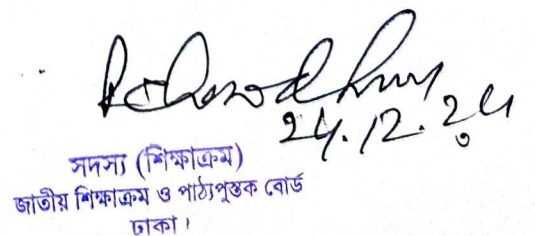 24.12.24
সদস্য (শিক্ষাক্রম)
জাতীয় শিক্ষাক্রম ও পাঠ্যপুস্তক বোর্ড
ঢাকা।